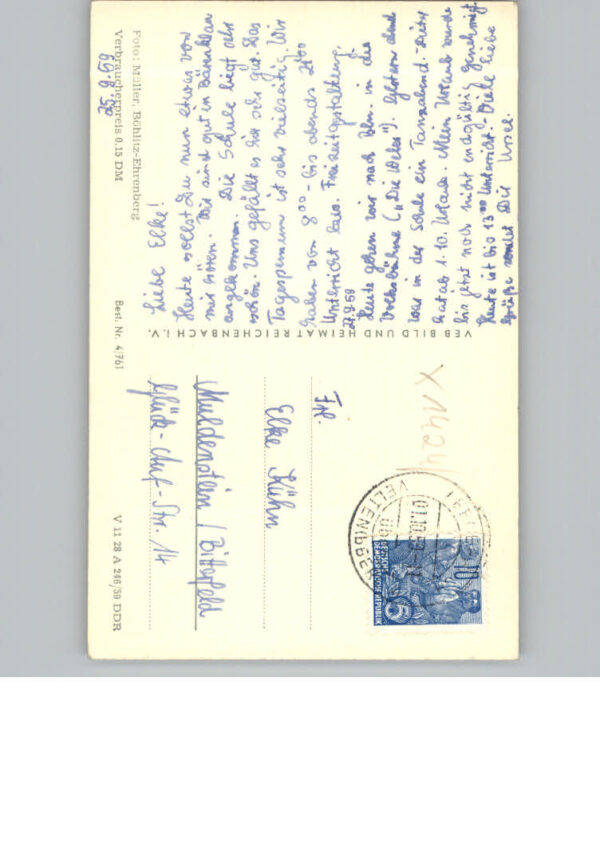 Foto: Müller, Böhlitz-Ehrenberg
Verbraucherpreis 0,15 DM
25.9.59
Liebe Elke!
Heute sollst Du nun etwas von
mir hören. Wir sind gut in Bärenklau
angekommen. Die Schule liegt sehr
schön. Uns gefällt es hier sehr gut. Das
Tagespensum ist sehr vielseitig. Wir
haben von 8⁰⁰ - bis abends 21⁰⁰
Unterricht bzw. Freizeitgestaltung.
27.9.59
Heute gehen wir nach Bln. in die
Volksbühne („Die Weber"). Gestern abend
war in der Schule ein Tanzabend.
hat ab 1.10. Urlaub. Mein Urlaub wurde
bis jetzt noch nicht endgültig genehmigt.
Heute ist bis 13⁰⁰ Unterricht. Viele liebe
Grüße sendet Dir Ursel.
VEB BILD UND HEIMAT REICHENBACH i. V.
Best. Nr. 4/761
V 11 28 A 246/59 DDR
Frl.
Elke Kühn
Muldenstein / Bitterfeld
Glück-Auf-Str. 14
VELTEN
01.10.59
DEUTSCHE
DEMOKRATISCHE
REPUBLIK
5